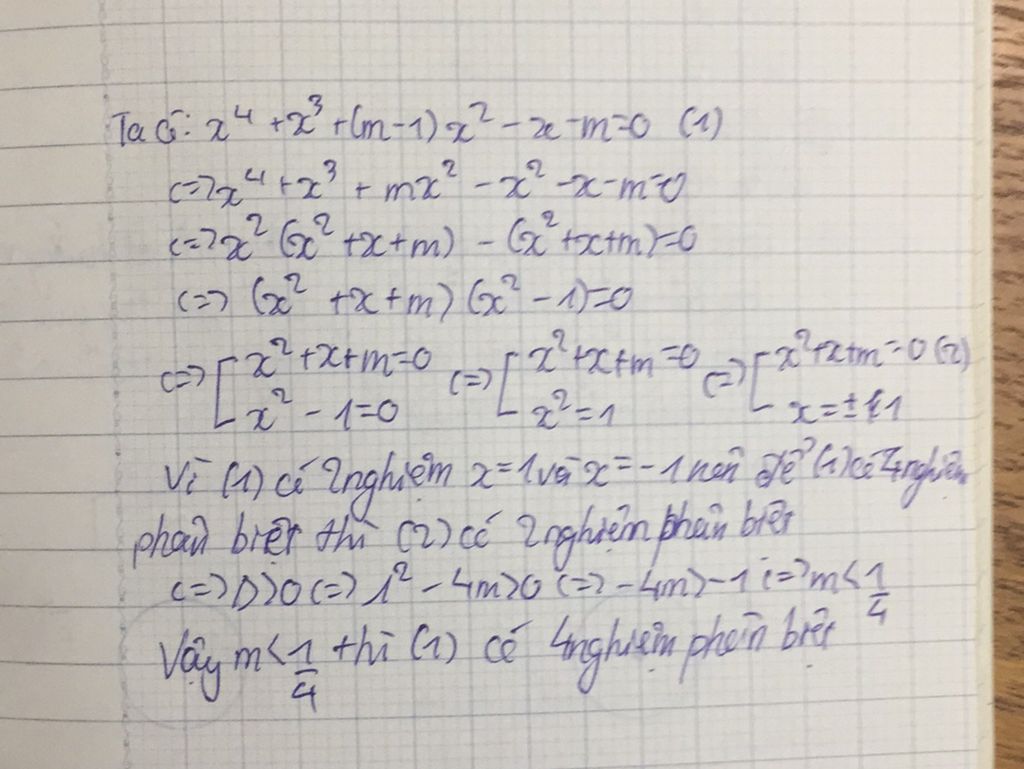 Ta có: x⁴ + x³ + (m-1) x² - x - m = 0 (1)
<=> x⁴ + x³ + mx² - x² - x - m = 0
<=> x² (x² + x + m) - (x² + x + m) = 0
<=> (x² + x + m) (x² - 1) = 0
<=> [ x² + x + m = 0 <=> [ x² + x + m = 0 <=> [ x² + x + m = 0 (2)
x² - 1 = 0 x² = 1 x = ± 1
Vì (1) có 2 nghiệm x = 1 và x = -1 nên để (1) có 4 nghiệm
phân biệt thì (2) có 2 nghiệm phân biệt
<=> Δ > 0 <=> 1² - 4m > 0 <=> -4m > -1 <=> m < 1/4
Vậy m < 1/4 thì (1) có 4 nghiệm phân biệt